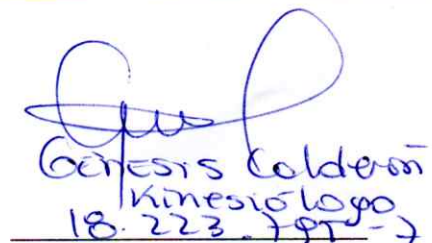 Génesis Calderón
Kinesiólogo
18.223.